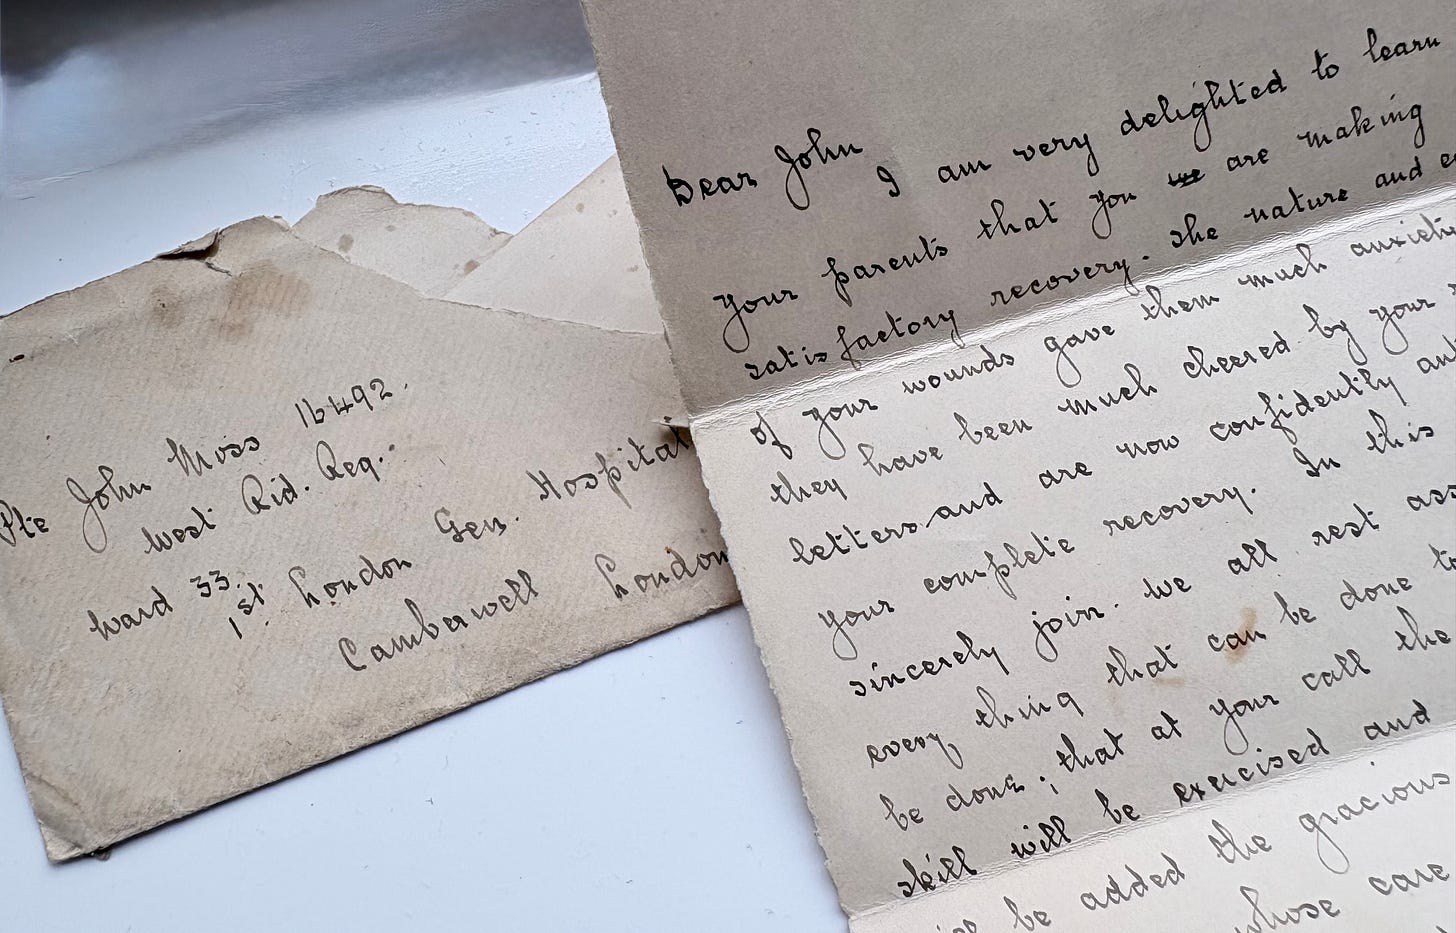 Pte John Moss 16492.
West Rid. Reg.
Ward 33.
1st London Gen. Hospital
Camberwell London
Dear John
I am very delighted to learn
your parents that you are making
satisfactory recovery. The nature and
of your wounds gave them much anxiety
they have been much cheered by your
letters and are now confidently
your complete recovery. In this
sincerely join. We all rest
every thing that can be done to
be done; that at your call the
skill will be exercised and
be added the gracious
whose care